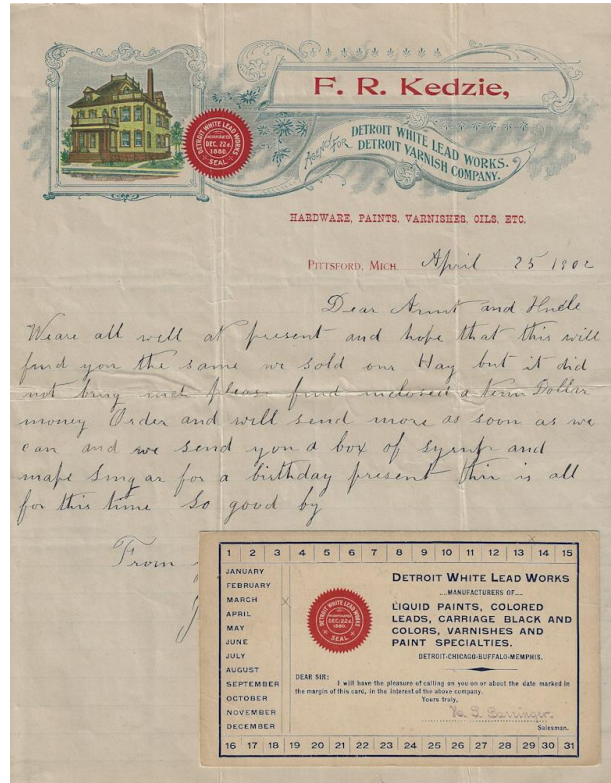 F. R. Kedzie,
AGENCY FOR DETROIT WHITE LEAD WORKS.
DETROIT VARNISH COMPANY.
DETROIT WHITE LEAD WORKS
INCORPORATED
DEC. 22d.
1880.
SEAL
HARDWARE, PAINTS, VARNISHES, OILS, ETC.
PITTSFORD, MICH. April 25 1902
Dear Aunt and Uncle
We are all well at present and hope that this will
find you the same we sold our Hay but it did
not bring please find inclosed a Dollar
money Order and will send more as soon as we
can and we send you a box of syrup and
for a birthday present this is all
for this time So good by
From
1 2 3 4 5 6 7 8 9 10 11 12 13 14 15
JANUARY
FEBRUARY
MARCH
APRIL
MAY
JUNE
JULY
AUGUST
SEPTEMBER
OCTOBER
NOVEMBER
DECEMBER
DETROIT WHITE LEAD WORKS
INCORPORATED
DEC. 22d.
1880.
SEAL
DETROIT WHITE LEAD WORKS
....MANUFACTURERS OF....
LIQUID PAINTS, COLORED
LEADS, CARRIAGE BLACK AND
COLORS, VARNISHES AND
PAINT SPECIALTIES.
DETROIT-CHICAGO-BUFFALO-MEMPHIS.
DEAR SIR:
I will have the pleasure of calling on you on or about the date marked
in the margin of this card, in the interest of the above company.
Yours truly,
Salesman.
16 17 18 19 20 21 22 23 24 25 26 27 28 29 30 31